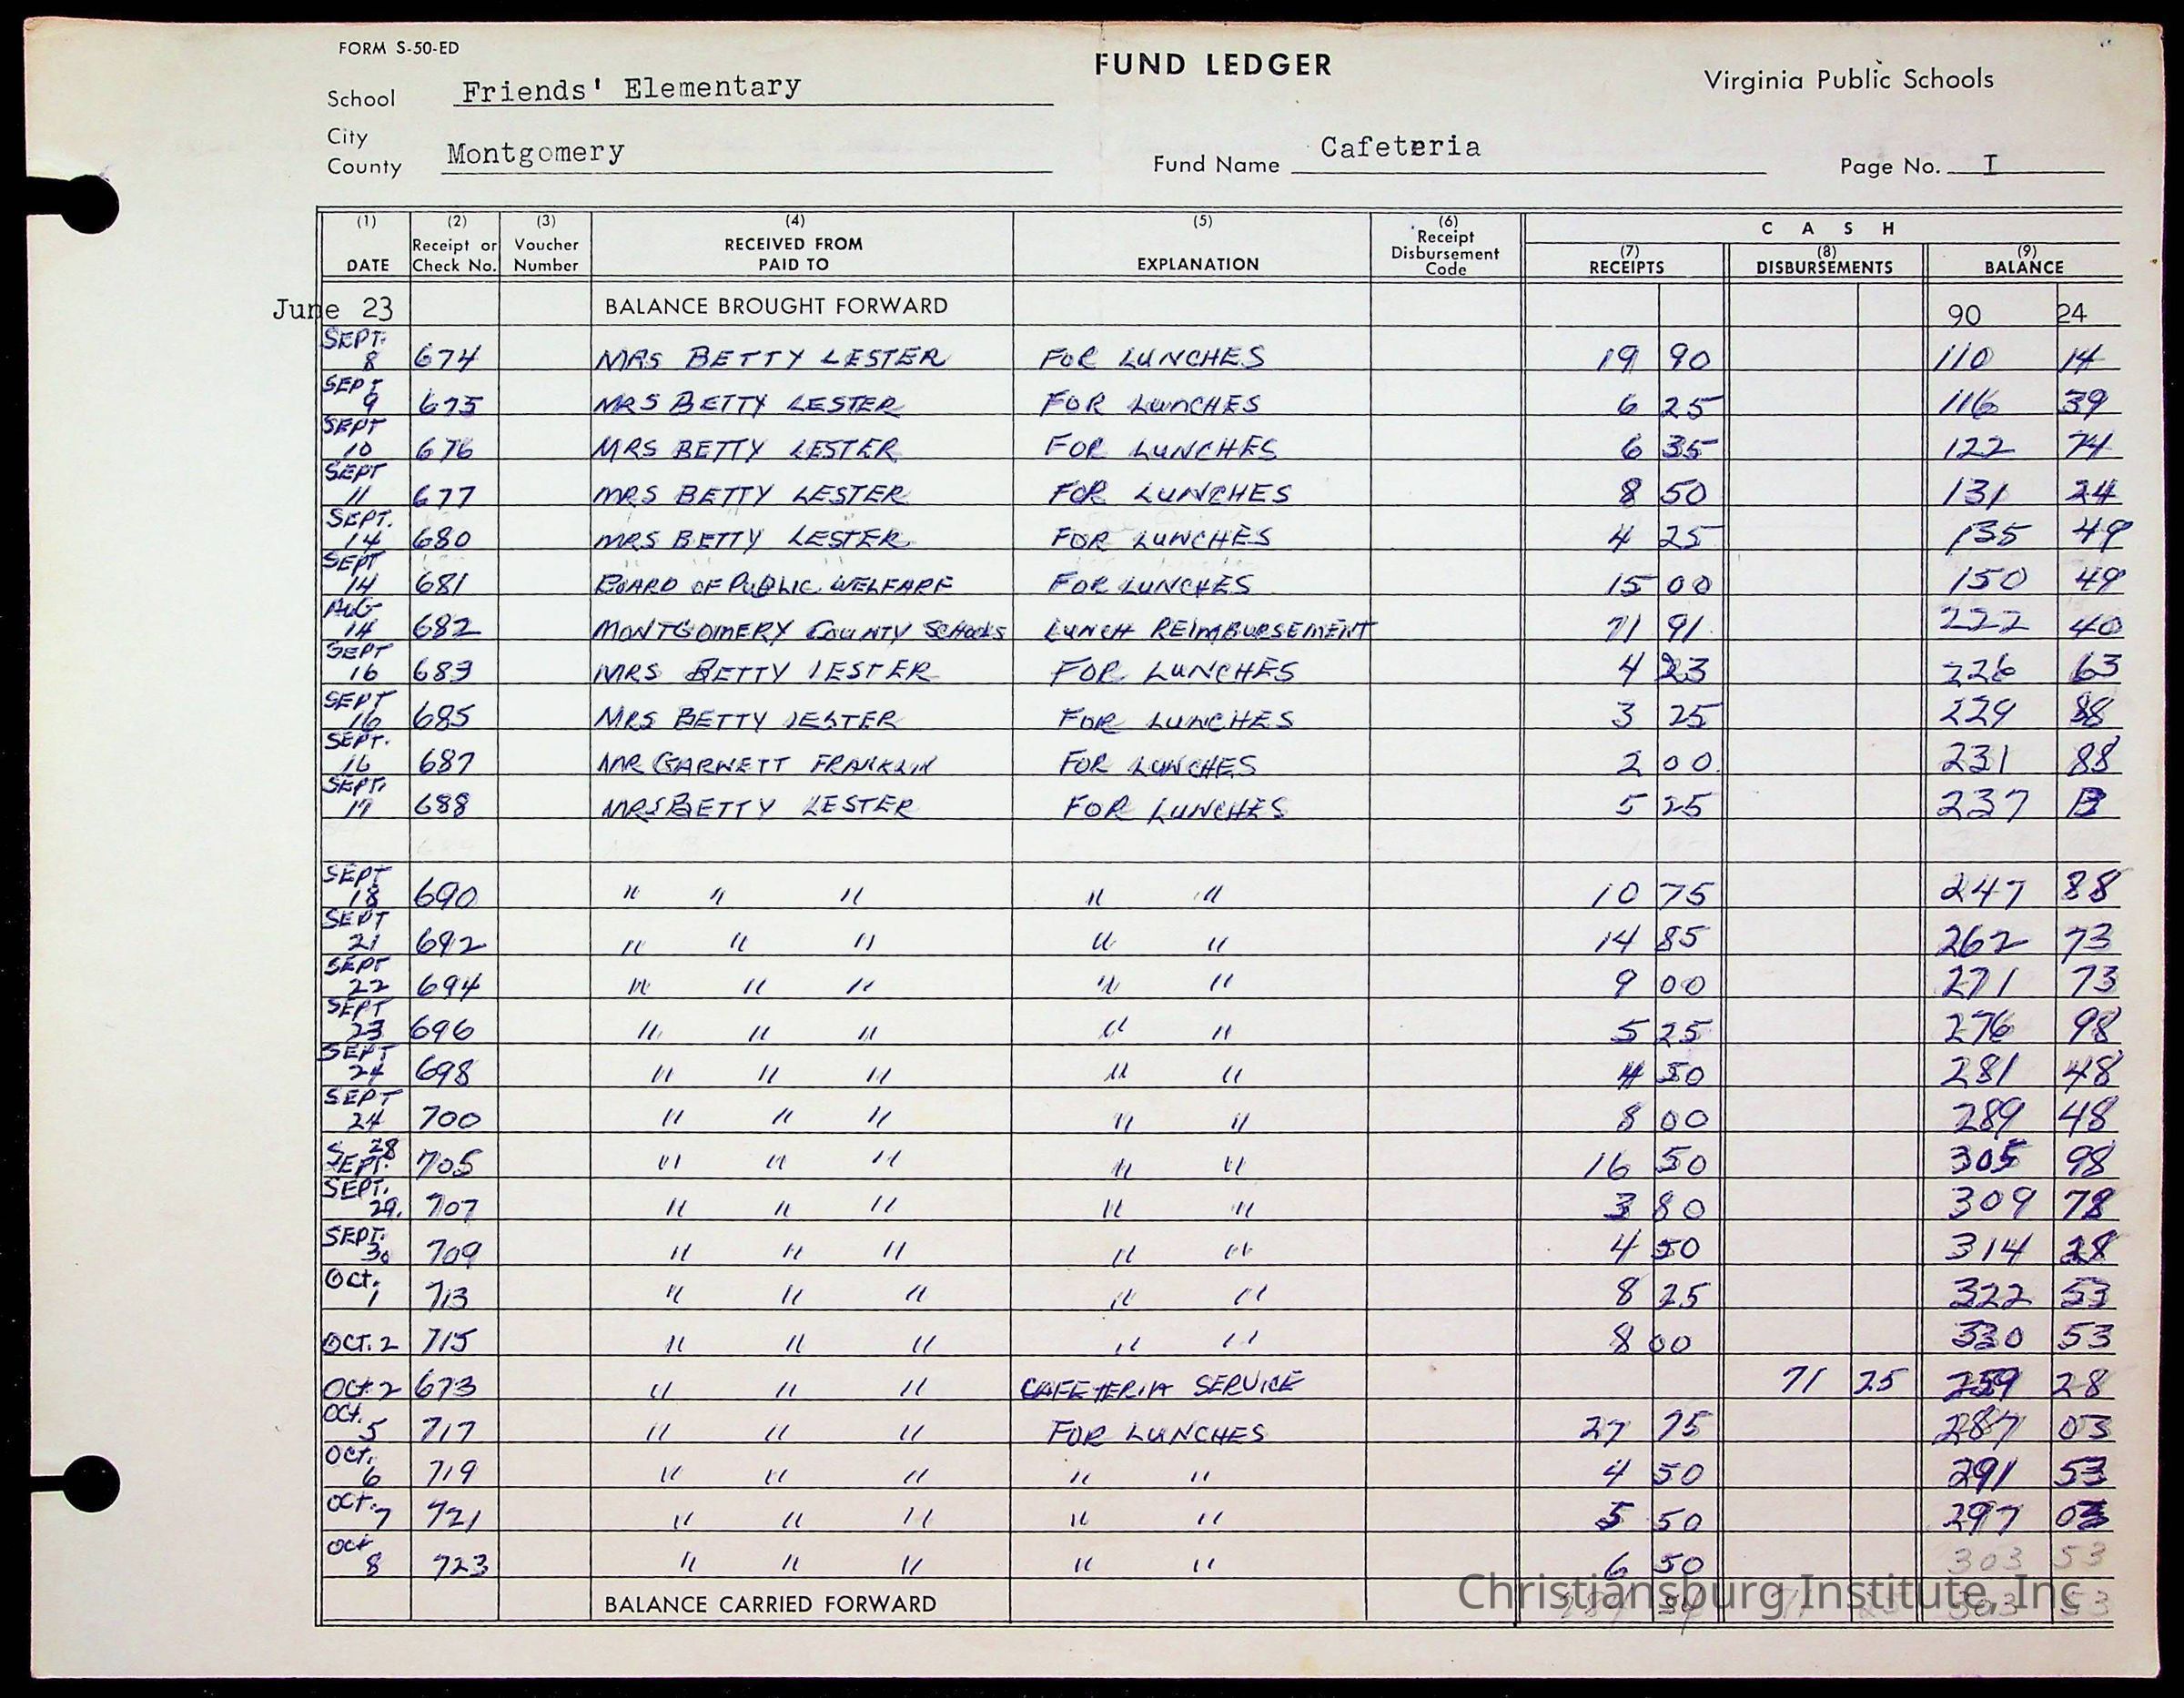 FORM S-50-ED
FUND LEDGER
Virginia Public Schools
School Friends' Elementary
City
County Montgomery
Fund Name Cafeteria
Page No. I
(1) (2) (3) (4) (5) (6) C A S H
DATE Receipt or Check No. Voucher Number RECEIVED FROM PAID TO EXPLANATION Receipt Disbursement Code (7) RECEIPTS (8) DISBURSEMENTS (9) BALANCE
June 23 BALANCE BROUGHT FORWARD 90 24
SEPT. 8 674 MRS BETTY LESTER FOR LUNCHES 19 90 110 14
SEPT 9 675 MRS BETTY LESTER FOR LUNCHES 6 25 116 39
SEPT 10 676 MRS BETTY LESTER FOR LUNCHES 6 35 122 74
SEPT 11 677 MRS BETTY LESTER FOR LUNCHES 8 50 131 24
SEPT. 14 680 MRS BETTY LESTER FOR LUNCHES 4 25 135 49
SEPT 14 681 BOARD OF PUBLIC WELFARE FOR LUNCHES 15 00 150 49
AUG 14 682 MONTGOMERY COUNTY SCHOOLS LUNCH REIMBURSEMENT 71 91 222 40
SEPT 16 683 MRS BETTY LESTER FOR LUNCHES 4 23 226 63
SEPT 16 685 MRS BETTY LESTER FOR LUNCHES 3 25 229 88
SEPT. 16 687 MR GARNETT FRANKLIN FOR LUNCHES 2 00 231 88
SEPT. 17 688 MRS BETTY LESTER FOR LUNCHES 5 25 237 13
SEPT 18 690 " " " " " 10 75 247 88
SEPT 21 692 " " " " " 14 85 262 73
SEPT 22 694 " " " " " 9 00 271 73
SEPT 23 696 " " " " " 5 25 276 98
SEPT 24 698 " " " " " 4 50 281 48
SEPT 24 700 " " " " " 8 00 289 48
SEPT. 28 705 " " " " " 16 50 305 98
SEPT. 29. 707 " " " " " 3 80 309 78
SEPT. 30 709 " " " " " 4 50 314 28
Oct. 1 713 " " " " " 8 25 322 53
OCT. 2 715 " " " " " 8 00 330 53
Oct. 2 673 " " " CAFETERIA SERVICE 71 25 259 28
OCT. 5 717 " " " FOR LUNCHES 27 75 287 03
OCT. 6 719 " " " " " 4 50 291 53
OCT. 7 721 " " " " " 5 50 297 03
Oct 8 723 " " " " " 6 50 303 53
BALANCE CARRIED FORWARD 71 303 53
Christiansburg Institute, Inc